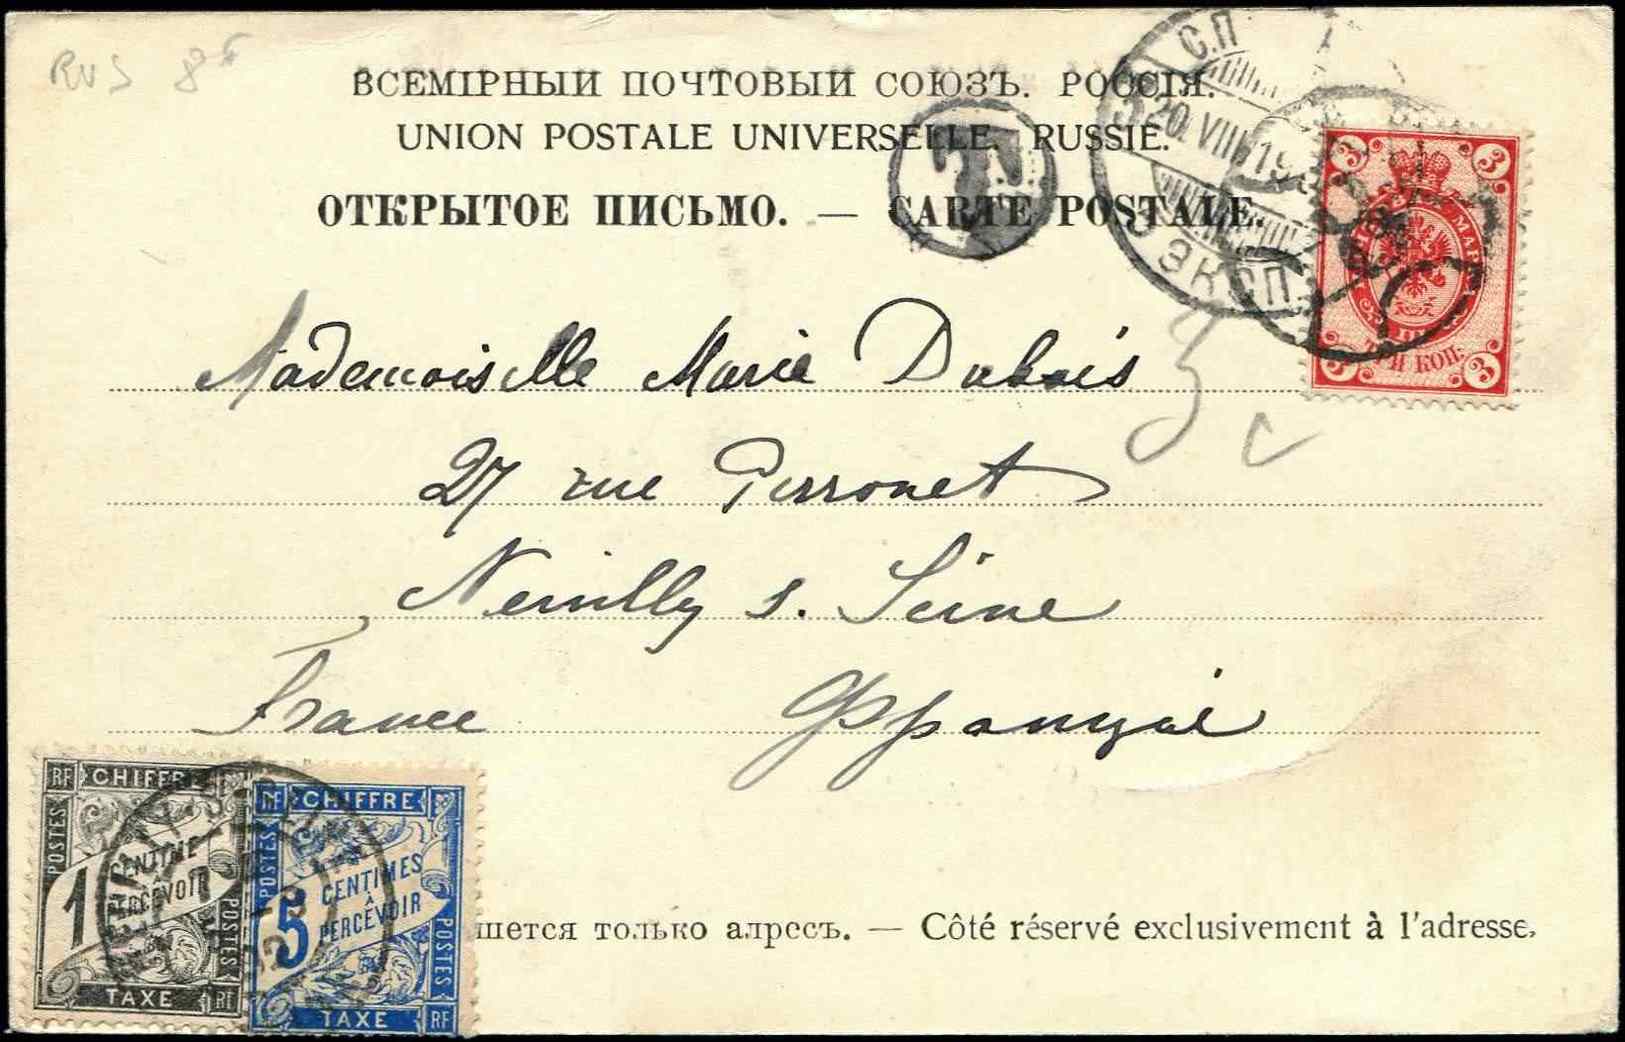 RUS 8F
ВСЕМІРНЫЙ ПОЧТОВЫЙ СОЮЗЪ. РОССІЯ.
UNION POSTALE UNIVERSELLE. RUSSIE.
ОТКРЫТОЕ ПИСЬМО. — CARTE POSTALE.
T
С.П
3 20 VIII 19
ЭКСП.
3 3
МАРКА
ТРИ КОП.
3 3
Mademoiselle Marie Dubois
3 c
27 rue Perronet
Neuilly s. Seine
France Франція
RF CHIFFRE
POSTES
1 CENTIME
À PERCEVOIR
POSTES
TAXE RF
RF CHIFFRE
POSTES
5 CENTIMES
À PERCEVOIR
POSTES
TAXE RF
шется только адресъ. — Côté réservé exclusivement à l'adresse.